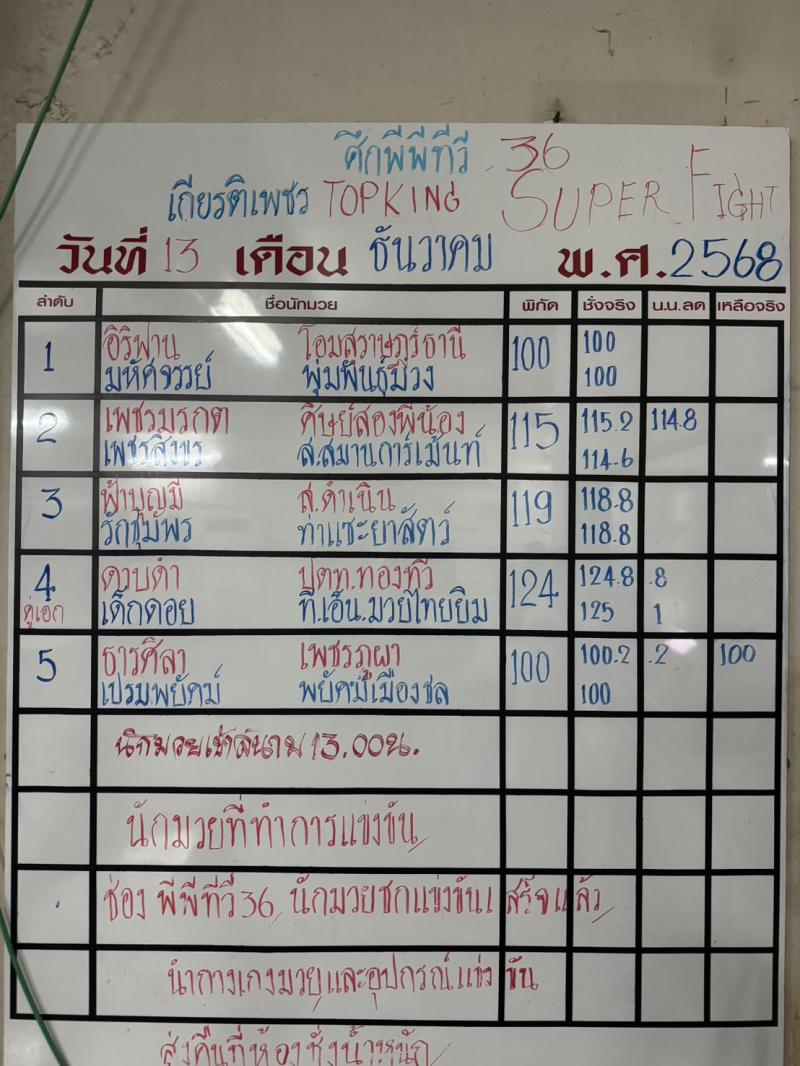 ศึกพีพีทีวี 36
เกียรติเพชร TOPKING SUPER FIGHT
วันที่ 13 เดือน ธันวาคม พ.ศ. 2568
ลำดับ ชื่อนักมวย พิกัด ชั่งจริง น.น.ลด เหลือจริง
1 อิริฟาน โอมสุราษฎร์ธานี 100 100
มหัศจรรย์ พุ่มพันธุ์ม่วง 100
2 เพชรมรกต ศิษย์สองพี่น้อง 115 115.2 114.8
เพชรสิงขร ส.สมานการ์เม้นท์ 114.6
3 ฟ้าบุญมี ส.ดำเนิน 119 118.8
รักชุมพร ท่าแซะยาสัตว์ 118.8
4 ดวบดำ ปตท.ทองทวี 124 124.8 .8
คู่เอก เด็กดอย ที.เอ็น.มวยไทยยิม 125 1
5 ธารศิลา เพชรภูผา 100 100.2 .2 100
เปรมพยัคฆ์ พยัคฆ์เมืองชล 100
นักมวยเข้าสนาม 13.00น.
นักมวยที่ทำการแข่งขัน
ช่อง พีพีทีวี 36 นักมวยชกแข่งขันเสร็จแล้ว
นำกางเกงมวยและอุปกรณ์แข่งขัน
ส่งคืนที่ห้องชั่งน้ำหนัก